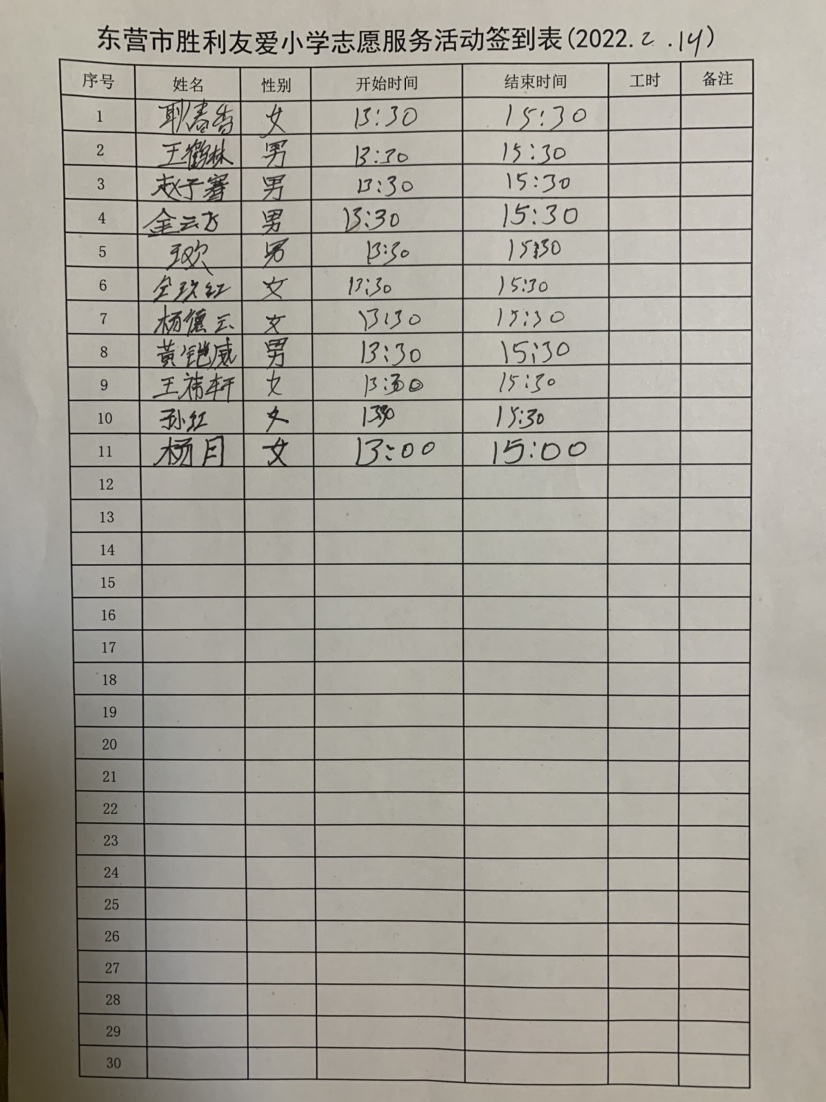 东营市胜利友爱小学志愿服务活动签到表(2022.2.14)
序号 姓名 性别 开始时间 结束时间 工时 备注
1 女 13:30 15:30
2 王鹤林 男 13:30 15:30
3 赵子骞 男 13:30 15:30
4 金云飞 男 13:30 15:30
5 王欢 男 13:30 15:30
6 女 13:30 15:30
7 女 13:30 15:30
8 黄铠威 男 13:30 15:30
9 王祎轩 女 13:30 15:30
10 孙红 女 1330 15:30
11 杨月 女 13:00 15:00
12
13
14
15
16
17
18
19
20
21
22
23
24
25
26
27
28
29
30